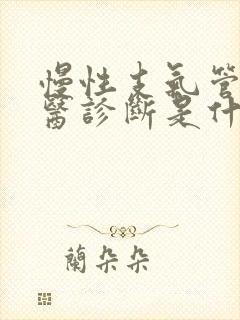 慢性支氣管
醫診斷是什
蘭朵朵